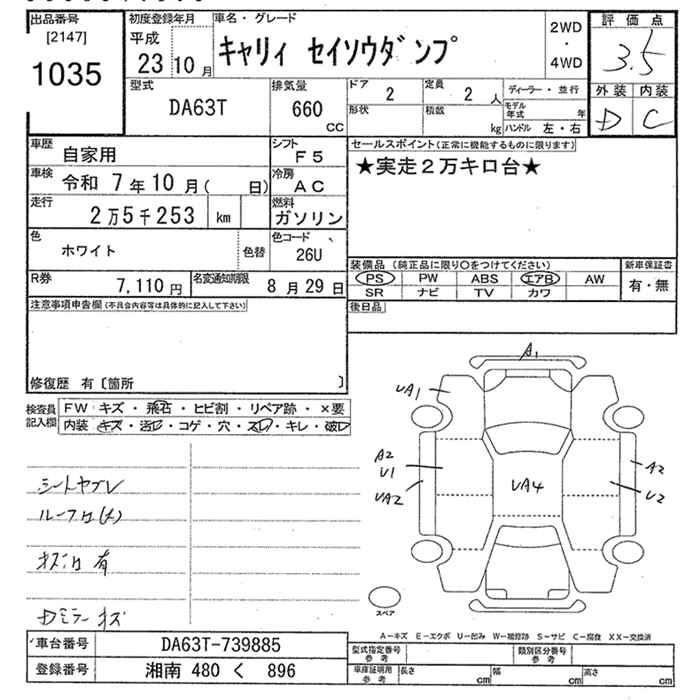 出品番号
[2147]
1035
初度登録年月
平成
23 10月
車名・グレード
キャリィ セイソウダンプ
2WD
・
4WD
評価点
3.5
外装 内装
D C
型式
DA63T
排気量
660
CC
ドア
2
定員
2 人
形状
積載
kg
ディーラー・並行
モデル年式 年
ハンドル 左・右
車歴
自家用
シフト
F5
車検
令和 7年10月( 日)
冷房
AC
走行
2万5千253 km
燃料
ガソリン
色
ホワイト
色替
色コード
26U
R券
7,110円
名変通知期限
8月29日
セールスポイント(正常に機能するものに限ります)
★実走2万キロ台★
装備品(純正品に限り○をつけてください)
PS PW ABS エアB AW
SR ナビ TV カワ
新車保証書
有・無
後日品
注意事項申告欄(不具合内容等は具体的に記入して下さい)
修復歴 有〔箇所 〕
検査員記入欄
FW キズ・飛石・ヒビ割・リペア跡・×要
内装 キズ・汚レ・コゲ・穴・スレ・キレ・破レ
シートヤブレ
有
ミラーキズ
A1
UA1
A2
U1
UA2
UA4
A2
U2
スペア
A－キズ E－エクボ U－凹み W－補修跡 S－サビ C－腐食 XX－交換済
車台番号
DA63T-739885
登録番号
湘南 480 く 896
型式指定番号
参考
類別区分番号
参考
車庫証明用
参考
長さ cm
幅 cm
高さ cm